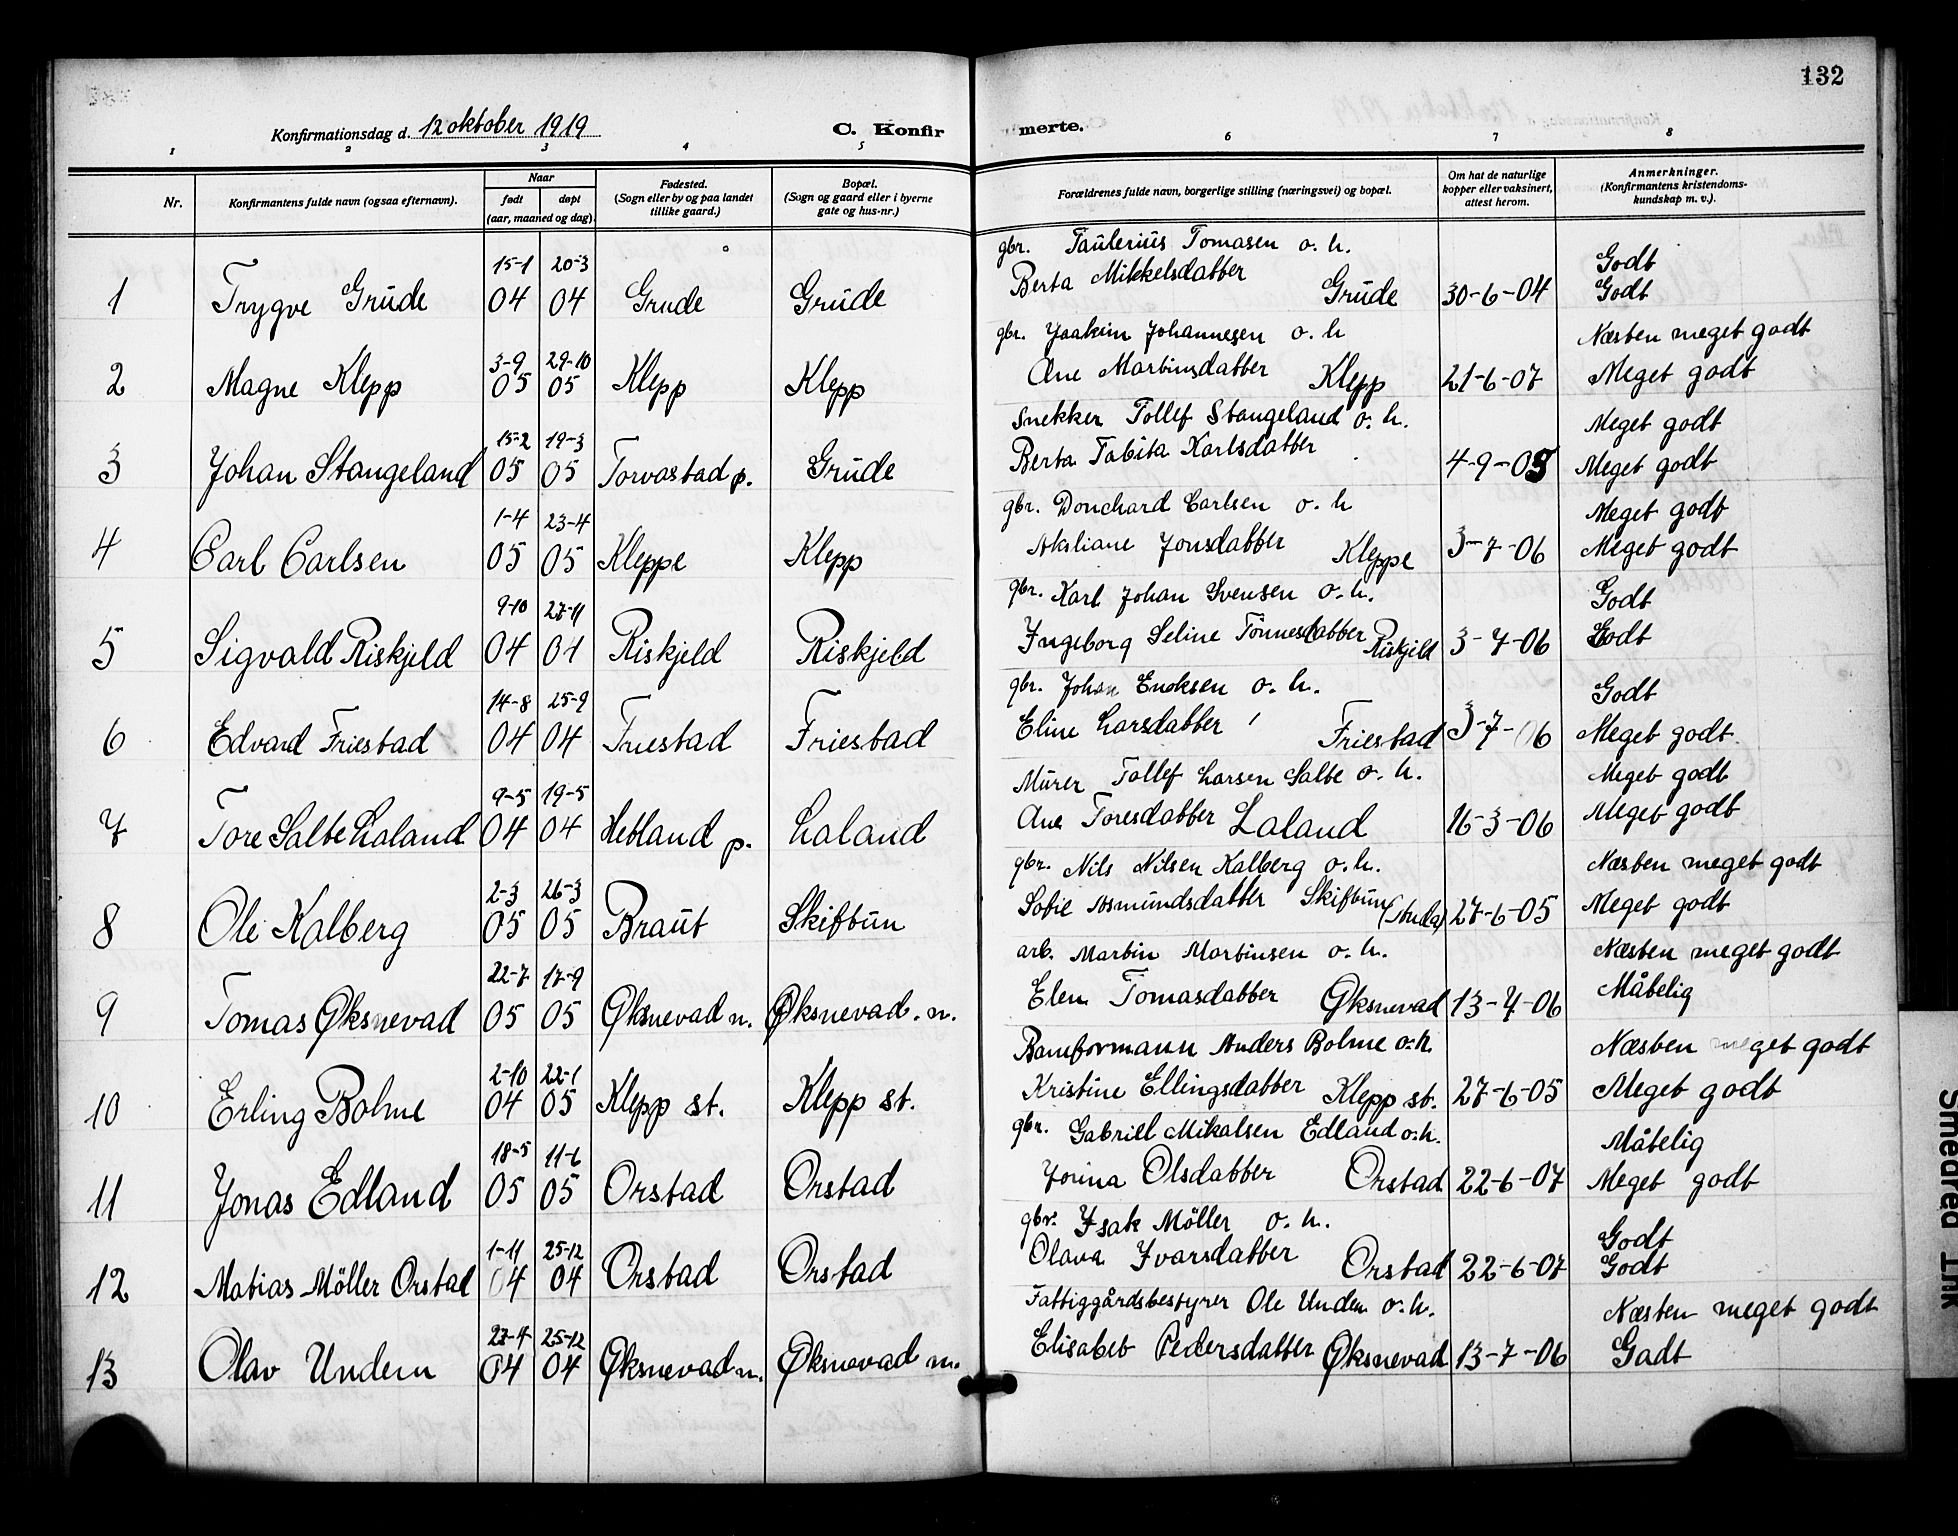 132
Konfirmationsdag d. 12 oktober 1919 C. Konfirmerte.
1 2 3 4 5 6 7 8
Nr.
Konfirmantens fulde navn (ogsaa efternavn).
Naar
født døpt
(aar, maaned og dag).
Fødested.
(Sogn eller by og paa landet
tillike gaard.)
Bopæl.
(Sogn og gaard eller i byerne
gate og hus-nr.)
Forældrenes fulde navn, borgerlige stilling (næringsvei) og bopæl.
Om hat de naturlige
kopper eller vaksinert,
attest herom.
Anmerkninger.
(Konfirmantens kristendoms-
kundskap m. v.).
15-1 20-3 gbr. Taulerius Tomasen o. h. Godt
1 Trygve Grude 04 04 Grude Grude Berta Mikkelsdatter Grude 30-6-04 Godt
3-9 29-10 gbr. Joakim Johannesen o. h Næsten meget godt
2 Magne Klepp 05 05 Klepp Klepp Ane Martinsdatter Klepp 21-6-07 Meget godt
15-2 19-3 Snekker Tollef Stangeland o. h. Meget godt
3 Johan Stangeland 05 05 Torvastad p. Grude Berta Tabita Karlsdatter 4-9-05 Meget godt
1-4 23-4 gbr. Donchard Carlsen o. h Meget godt
4 Carl Carlsen 05 05 Kleppe Klepp Aksliane Jonsdatter Kleppe 3-7-06 Meget godt
9-10 27-11 gbr. Karl Johan Svensen o. h. Godt
5 Sigvald Riskjeld 04 04 Riskjeld Riskjeld Ingeborg Seline Tønnesdatter Riskjeld 3-7-06 Godt
14-8 25-9 gbr. Johan Enoksen o. h. Godt
6 Edvard Friestad 04 04 Friestad Friestad Eline Larsdatter Friestad 3-7-06 Meget godt
9-5 19-5 Murer Tollef Larsen Salte o. h. Meget godt
7 Tore Salte Laland 04 04 Hetland p. Laland Ane Toresdatter Laland 16-3-06 Meget godt
2-3 26-3 gbr. Nils Nilsen Kalberg o. h. Næsten meget godt
8 Ole Kalberg 05 05 Braut Skiftun Sofie Asmundsdatter Skiftun (Anda) 27-6-05 Meget godt
22-7 17-9 arb. Martin Martinsen o. h. Næsten meget godt
9 Tomas Øksnevad 05 05 Øksnevad n. Øksnevad. n. Elen Tomasdatter Øksnevad 13-7-06 Måtelig
2-10 22-1 Baneformann Anders Bolme o. h. Næsten meget godt
10 Erling Bolme 04 05 Klepp st. Klepp st. Kristine Ellingsdatter Klepp st. 27-6-05 Meget godt
18-5 11-6 gbr. Gabriel Mikalsen Edland o. h. Måtelig
11 Jonas Edland 05 05 Orstad Orstad Jorina Olsdatter Orstad 22-6-07 Meget godt
1-11 25-12 gbr. Isak Möller o. h. Godt
12 Matias Möller Orstad 04 04 Orstad Orstad Olava Ivarsdatter Orstad 22-6-07 Godt
25-12 Fattiggårdsbestyrer Ole Undem o. h. Næsten meget godt
13 Olav Undem 04 04 Øksnevad n. Øksnevad n. Elisabet Pedersdatter Øksnevad 13-7-06 Godt
Smeared Ink